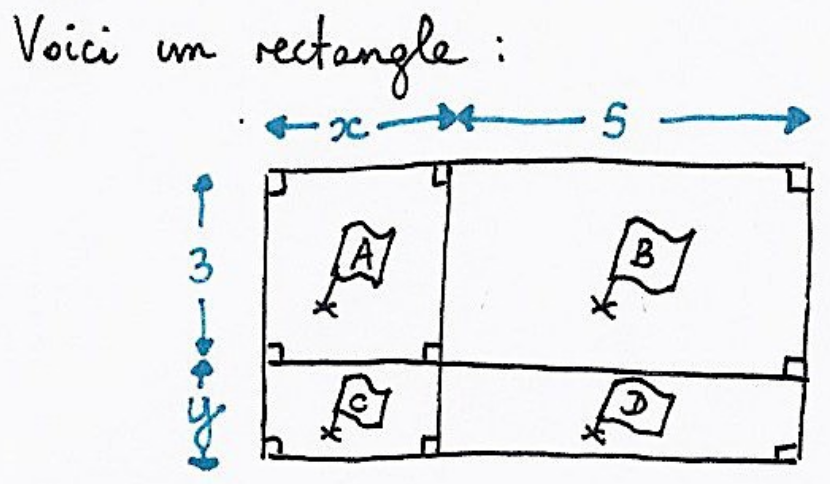 Voici un rectangle :
x 5
A B
3
C D
y